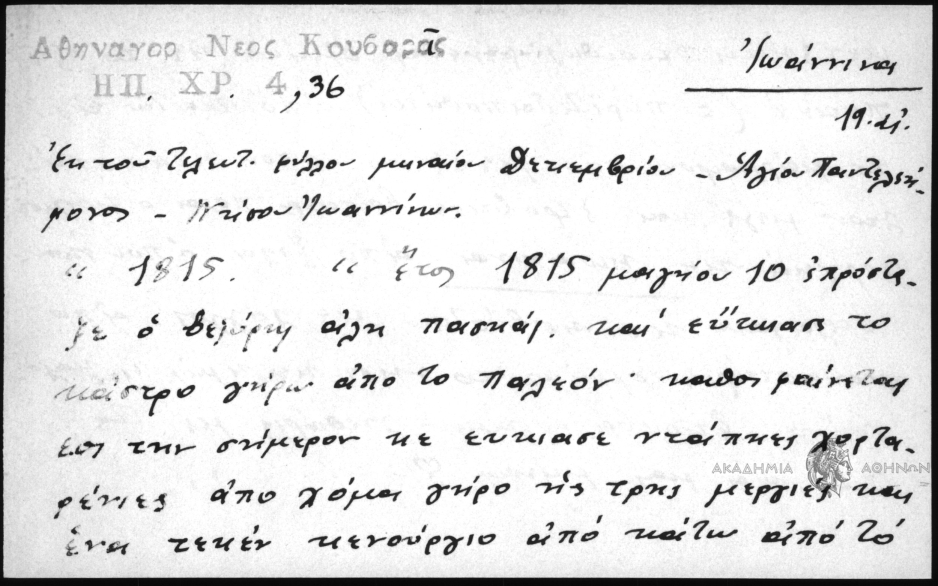 Αθηναγορ Νεος Κουβαρᾶς
ΗΠ. ΧΡ. 4, 36
Ἰωάννινα
19. αἰ.
Ἐκ τοῦ τελευτ. φύλλου μηναίου Δεκεμβρίου – Ἁγίου Παντελεή-
μονος – Νήσου Ἰωαννίνων.
“ 1815. “ ἔτος 1815 μαγηου 10 ἐπρόστα-
ξε ὁ βεζύρης ἀλη πασιάς. καὶ εὔτιασε το
κάστρο γηρω ἀπο το παλεόν. καθος φαίνεται
εος την σήμερον κε ευτιασε ντάπηες χορτα-
ρένιες ἀπο χόμα γηρο ἠς τρης μεργιές και
ἕνα τεκέν κενούργιο ἀπό κάτω ἀπό τό
ΑΚΑΔΗΜΙΑ ΑΘΗΝΩΝ